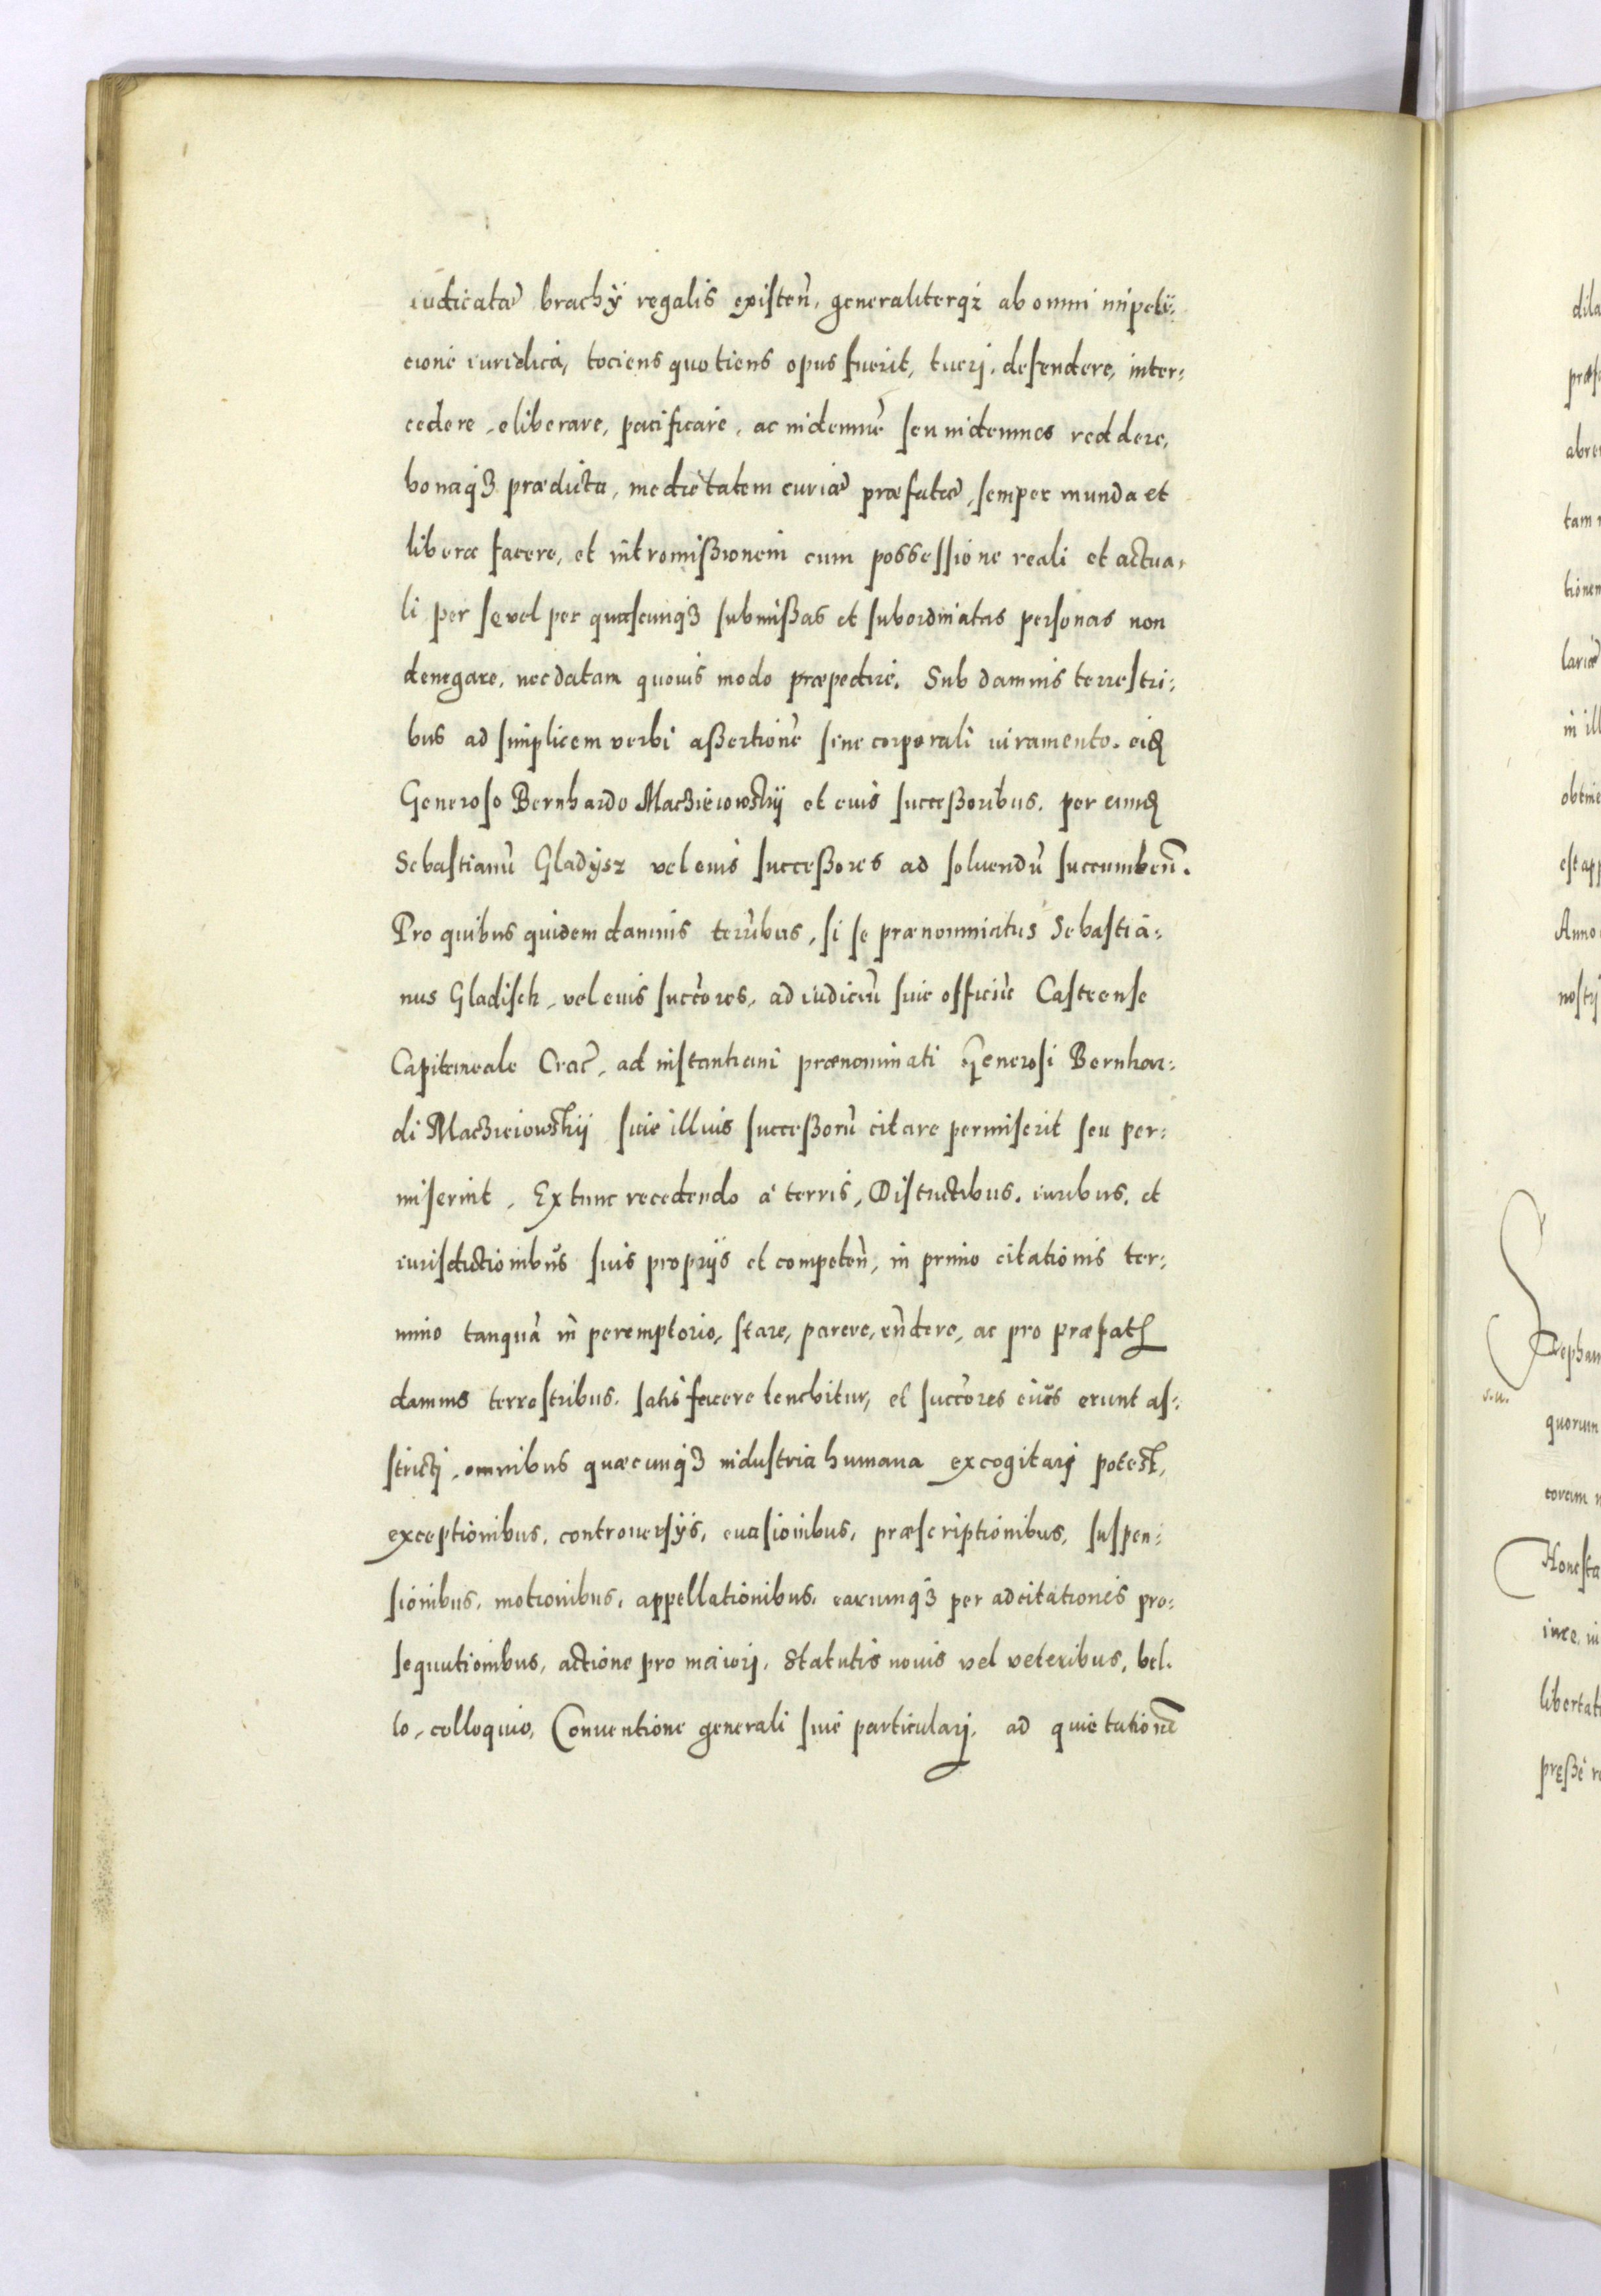 iudicatæ brachÿ regalis existeñ, generaliterqꝫ ab omni impetÿ:
cione iuridica, tociens quotiens opus fuerit, tuerj, defendere, inter:
cedere, eliberare, pacificare, ac indemnẽ seu indemnes reddere,
bonaqꝫ prædicta, medietatem curiæ præfatæ, semper munda et
libera facere, et intromißionem cum possessione reali et actua,
li per se vel per quascunqꝫ submißas et subordinatas personas non
denegare, nec datam quouis modo præpedire. Sub damnis terrestri:
bus ad simplicem verbi aßertionẽ sine corporali iuramento. eidꝫ
Generoso Bernhardo Macziéiowskÿ et euis succeßoribus. per eumdꝫ
Sebastianũ Gladÿsz vel euis succeßores ad soluendũ succumbeñ.
Pro quibus quidem damnis terribus, si se prænominatus Sebastia:
nus Gladisch, vel euis succores, ad iudiciũ siue officiũ Castrense
Capitaneale Crac̃, ad instantiam prænominati Generosi Bernhar:
di Macziéiowskÿ siue illuis succeßorũ citare permiserit seu per:
miserint, Ex tunc recedendo à terris, Districtibus, iuribus, et
iurisdictionibus suis proprÿs et competeñ, in primo citationis ter:
mino tanquã in peremptorio, stare, parere, rñdere, ac pro præfatis
damnis terrestribus, satisfacere tenebitur, et succores eius erunt as:
strictj, omnibus quæcunqꝫ industria humana excogitarj potest,
exceptionibus, controuersÿs, euasionibus, præscriptionibus, suspen:
sionibus, motionibus, appellationibus, earumqꝫ per adcitationes pro:
sequutionibus, actione pro maiorj, statutis nouis vel veteribus, bel.
lo, colloquio, Conuentione generali siue particularj, ad quietationẽ